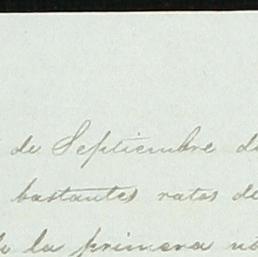 de Septiembre de
bastantes ratos de
la primera